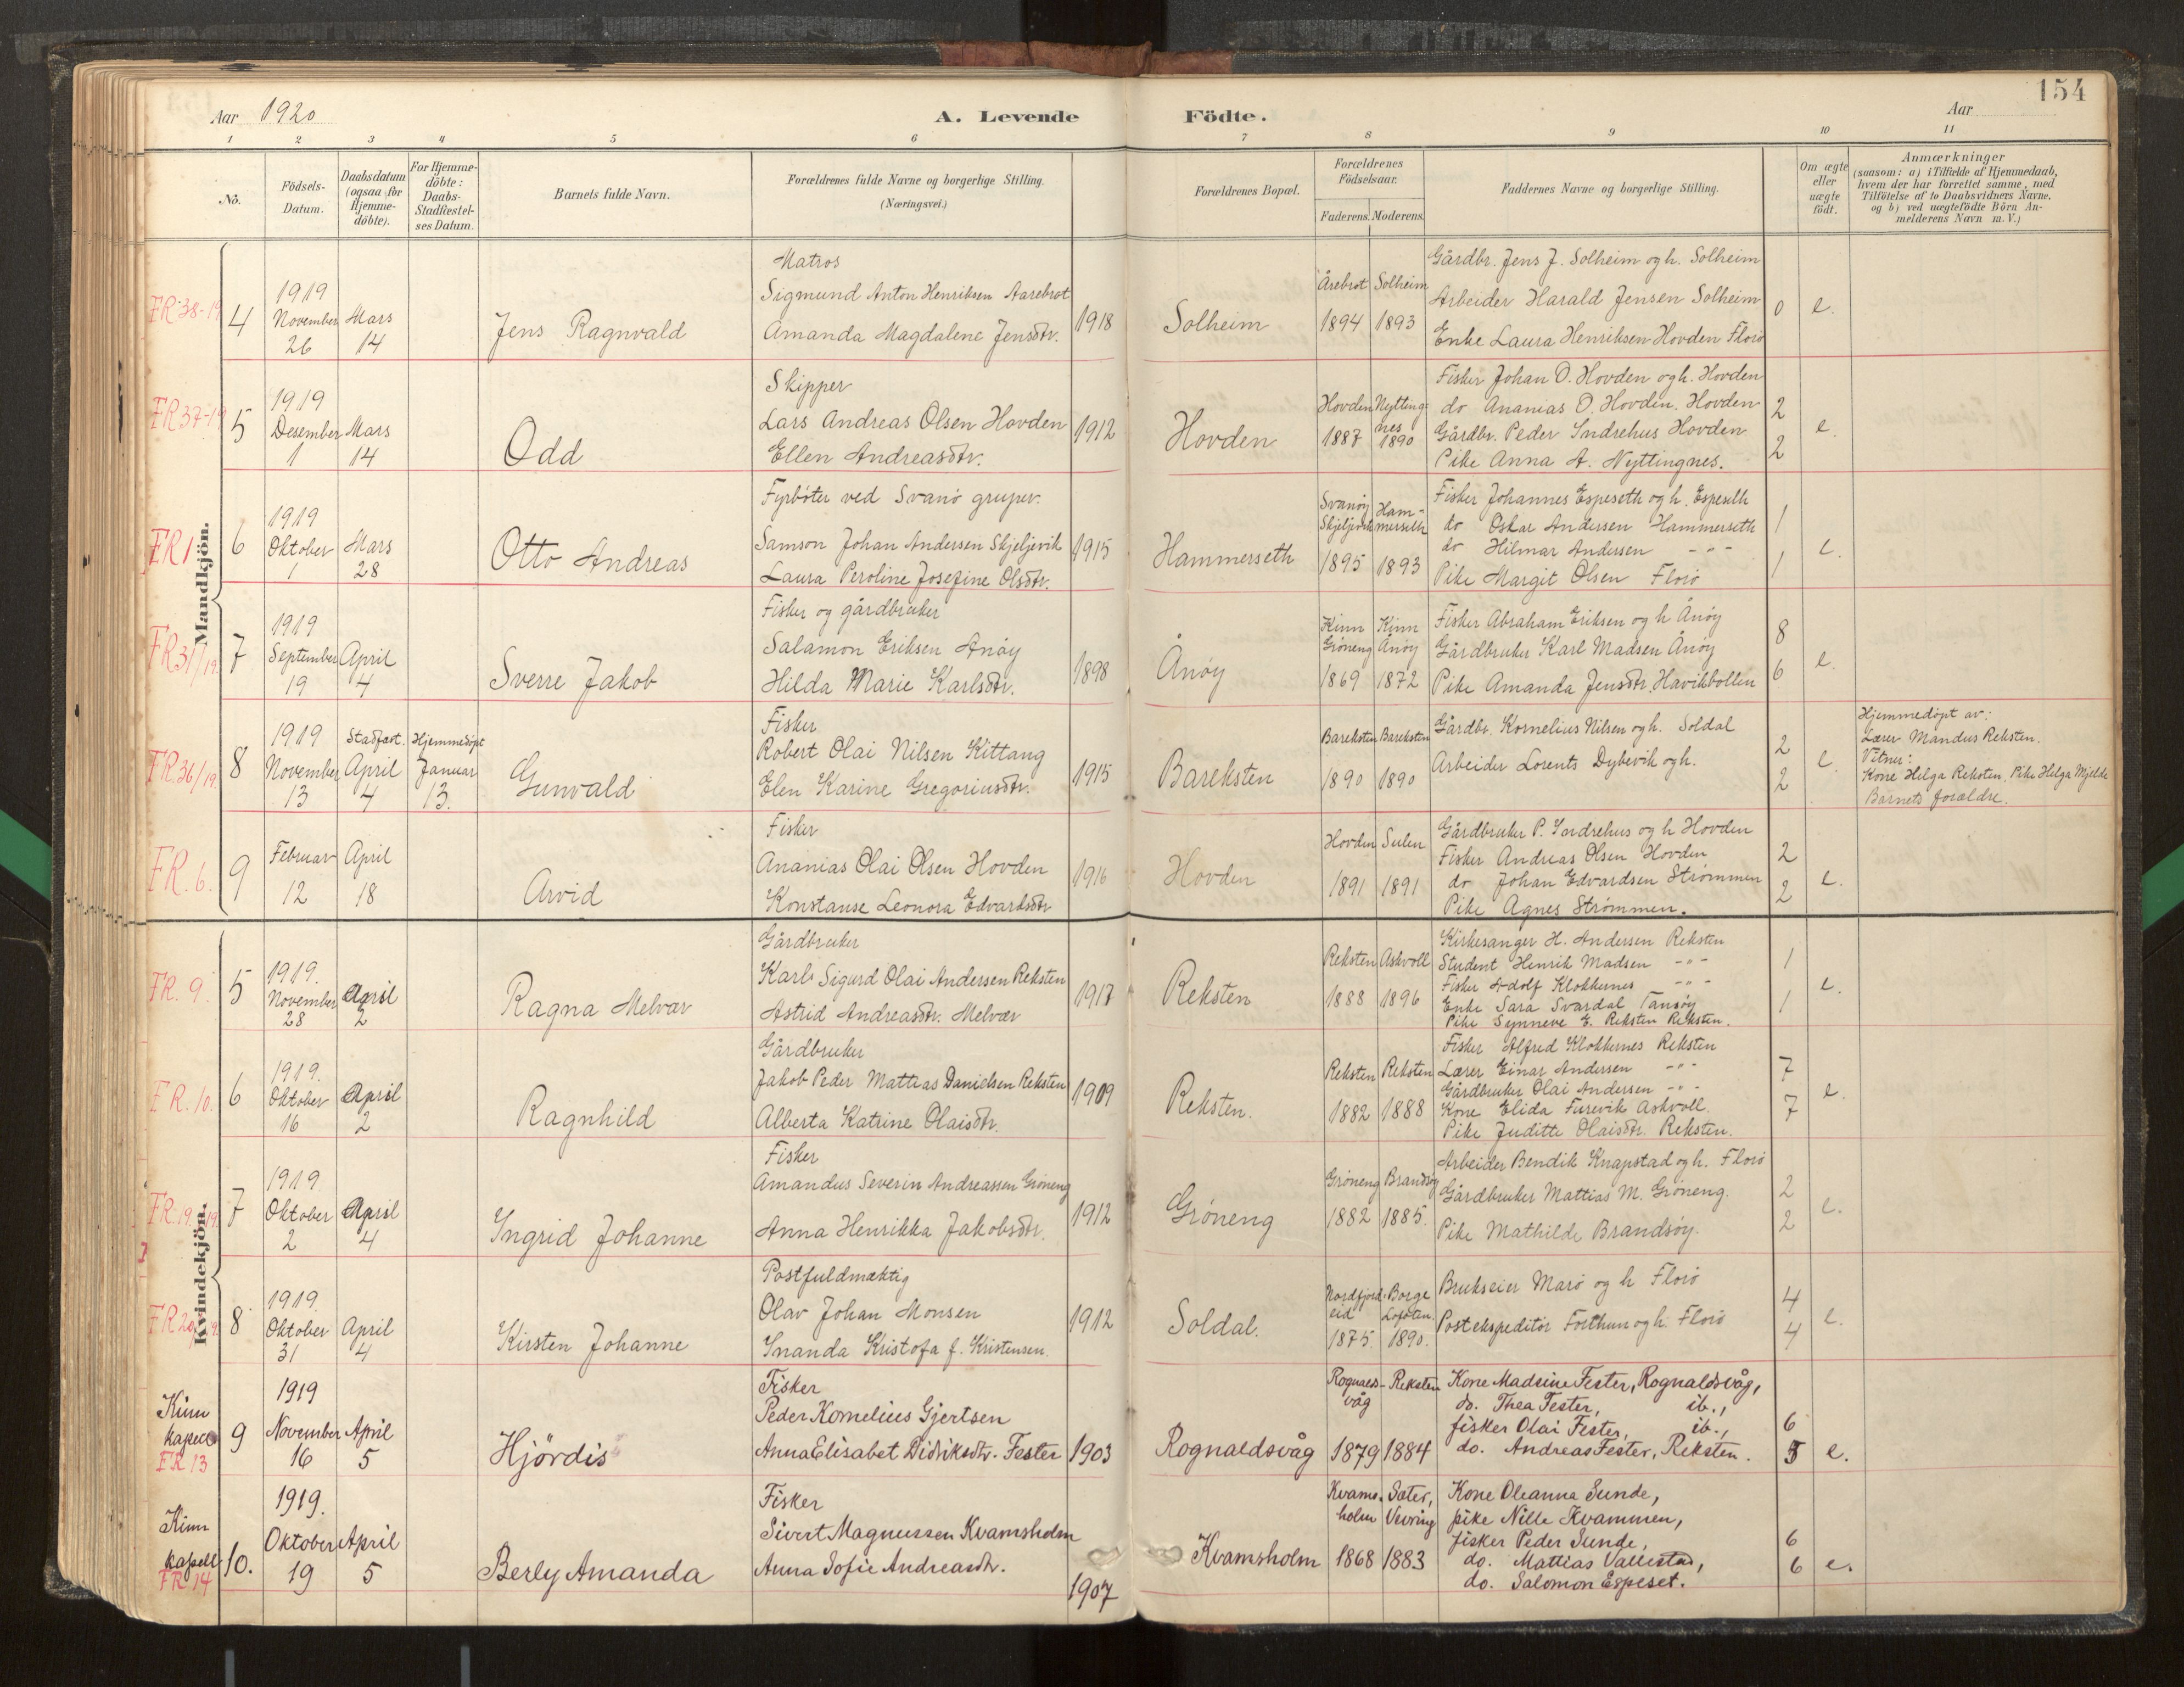 154
Aar 1920
A. Levende Födte.
Aar
1 2 3 4 5 6 7 8 9 10 11
No.
Födsels-Datum.
Daabsdatum (ogsaa for Hjemme-döbte).
For Hjemme-döbte: Daabs-Stadfæstel-ses Datum.
Barnets fulde Navn.
Forældrenes fulde Navne og borgerlige Stilling.
(Næringsvei.)
Forældrenes Bopæl.
Forældrenes Födselsaar.
Faderens. Moderens.
Faddernes Navne og borgerlige Stilling.
Om ægte eller uægte födt.
Anmærkninger
(saasom: a) i Tilfælde af Hjemmedaab,
hvem der har forrettet samme, med
Tilföielse af to Daabsvidners Navne,
og b) ved uægtefödte Börn An-
melderens Navn m. V.)
Mandkjön.
FR 38-19
4
1919 November 26
Mars 14
Jens Ragnvald
Matros
Sigmund Anton Henriksen Aarebrot
Amanda Magdalene Jensdtr.
1918
Solheim
Årebrot 1894
Solheim 1893
Gårdbr. Jens J. Solheim og h. Solheim
Arbeider Harald Jensen Solheim
Enke Laura Henriksen Hovden Florö
0
e.
FR 37-19
5
1919 Desember 1
Mars 14
Odd
Skipper
Lars Andreas Olsen Hovden
Ellen Andreasdtr.
1912
Hovden
Hovden 1887
Nyttingnes 1890
Fisker Johan O. Hovden og h. Hovden
do Ananias O. Hovden. Hovden
Gårdbr. Peder Indrehus Hovden
Pike Anna A. Nyttingnes.
2
2
e.
FR 1
6
1919 Oktober 1
Mars 28
Otto Andreas
Fyrböter ved Svanö gruper.
Samson Johan Andersen Skjeljevik
Laura Peroline Josefine Olsdtr.
1915
Hammerseth
Svanöy Skjeljevik 1895
Hammerseth 1893
Fisker Johannes Espeseth og h. Espeseth
do Oskar Andersen Hammerseth
do Hilmar Andersen -"-
Pike Margit Olsen Florö
1
1
e.
FR 31/19.
7
1919 September 19
April 4
Sverre Jakob
Fisker og gårdbruker
Salamon Eriksen Anöy
Hilda Marie Karlsdtr.
1898
Ånöy
Kinn Gröneng 1869
Kinn Anöy 1872
Fisker Abraham Eriksen og h Ånöy
Gårdbruker Karl Madsen Ånöy
Pike Amanda Jensdtr. Havikbotten
8
6
e.
FR 36/19.
8
1919 November 13
Stadfæst. April 4
Hjemmedöpt Januar 13.
Gunvald
Fisker
Robert Olai Nilsen Kittang
Elen Karine Gregoriusdtr.
1915
Bareksten
Bareksten 1890
Bareksten 1890
Gårdbr. Kornelius Nilsen og h. Soldal
Arbeider Lorents Dybevik og h.
2
2
e.
Hjemmedöpt av:
Lærer Mandus Reksten.
Vitner:
Kone Helga Reksten, Pike Helga Mjelde
Barnets forældre.
FR. 6.
9
Februar 12
April 18
Arvid
Fisker
Ananias Olai Olsen Hovden
Konstanse Leonora Edvardsdtr
1916
Hovden
Hovden 1891
Sulen 1891
Gårdbruker P. Indrehus og h Hovden
Fisker Andreas Olsen Hovden
do Johan Edvardsen Strömmen
Pike Agnes Strömmen.
2
2
e.
Kvindekjön.
FR. 9.
5
1919. November 28
April 2
Ragna Melvær
Gårdbruker
Karl Sigurd Olai Andersen Reksten
Astrid Andreasdtr. Melvær
1917
Reksten
Reksten 1888
Askvoll 1896
Kirkesanger H. Andersen Reksten
Student Henrik Madsen -"-
Fisker Adolf Klokkernes -"-
Enke Sara Svardal Tansöy
Pike Synneve E. Reksten Reksten.
1
1
e.
FR. 10.
6
1919. Oktober 16
April 2
Ragnhild
Gårdbruker
Jakob Peder Mattias Danielsen Reksten
Alberta Katrine Olaisdtr.
1909
Reksten.
Reksten 1882
Reksten 1888
Fisker Alfred Klokkernes Reksten
Lærer Einar Andersen -"-
Gårdbruker Olai Andersen -"-
Kone Elida Furevik Askvoll.
Pike Juditte Olaisdtr. Reksten.
7
7
e.
FR. 19. 19.
7
1919 Oktober 2
April 4
Ingrid Johanne
Fisker
Amandus Severin Andreassen Gröneng
Anna Henrikka Jakobsdtr.
1912
Gröneng
Gröneng 1882
Brandsöy 1885.
Arbeider Bendik Knapstad og h. Florö
Gårdbruker Mattias M. Gröneng.
Pike Mathilde Brandsöy.
2
2
e.
FR 20 19.
8
1919. Oktober 31
April 4
Kirsten Johanne
Postfuldmæktig
Olav Johan Monsen
Inanda Kristofa f. Kristensen.
1912
Soldal.
Nordfjordeid 1875.
Borge Lofoten. 1890.
Brukseier Marö og h Florö
Postekspeditör Forthun og h. Florö
4
4
e.
Kinn kapell
FR 13
9
1919 November 16
April 5
Hjördis
Fisker
Peder Kornelius Gjertsen
Anna Elisabet Didriksdtr. Fester
1903
Rognaldsvåg
Rognaldsvåg 1879
Reksten 1884
Kone Madsine Fester, Rognaldsvåg,
do. Thea Fester, ib.,
fisker Olai Fester, ib.,
do. Andreas Fester, Reksten.
6
5
e.
Kinn kapell
FR 14
10.
1919. Oktober 19
April 5
Berly Amanda
Fisker
Sivert Magnussen Kvamsholm
Anna Sofie Andreasdtr.
1907
Kvamsholm
Kvamsholm 1868
Sæter, Vevring 1883
Kone Oleanna Sunde,
pike Nille Kvammen,
fisker Peder Sunde,
do. Mattias Vallestad,
do. Salomon Espeset.
6
6
e.